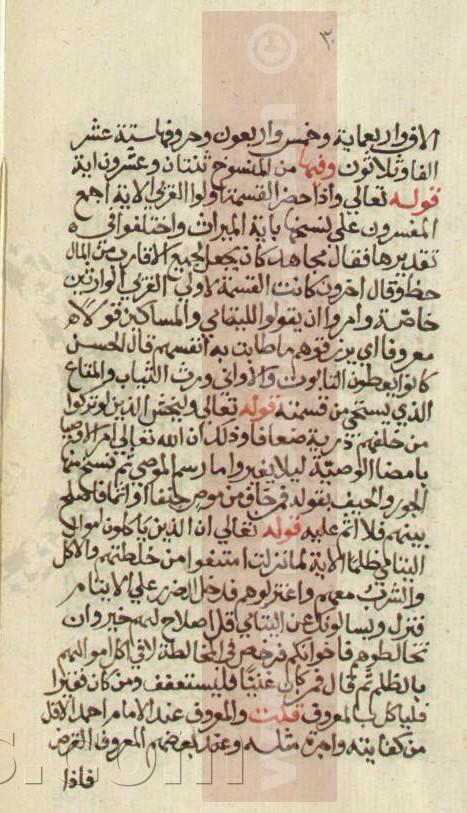 ٣٠
الاف واربعماية وخمس واربعون وحروفها ستة عشر
الفا وثلاثون وفيها من المنسوخ ثنتان وعشرون اية
قوله تعالي واذا حضر القسمة اولوا القربي الاية اجمع
المفسرون على نسخها باية الميراث واختلفوا في
تقديرها فقال مجاهد كان يجعل لجميع الاقارب من المال
حظ وقال اخرون كانت القسمة لاولي القربي الوارثين
خاصة وامروا ان يقولوا لليتامي والمساكين قولا
معروفا اي يرزقوهم ما طابت به انفسهم قال الحسن
كانوا يعطون التابوت والاواني ورث الثياب والمتاع
الذي يستحي من قسمته قوله تعالي وليخش الذين لو تركوا
من خلفهم ذرية ضعافا وذلك ان الله تعالي امر الاوصيا
بامضا الوصية ليلا يغيروا ما رسم الموصي ثم نسخ منها
الجور والحيف بقوله فمن خاف من موص جنفا او اثما فاصلح
بينهم فلا اثم عليه قوله تعالي ان الذين ياكلون اموال
اليتامي ظلما الاية لما نزلت امتنعوا من خلطتهم والاكل
والشرب معهم واعتزلوهم فدخل الضرر علي الايتام
فنزل ويسالونك عن اليتامي قل اصلاح لهم خير وان
تخالطوهم فاخوانكم فرخص في المخالطة لا في اكل اموالهم
بالظلم ثم قال فمن كان غنيا فليستعفف ومن كان فقيرا
فلياكل بالمعروف قلت والمعروف عند الامام احمد الاقل
من كفايته واجرة مثله وعند بعضهم المعروف القرض
فاذا
s.com